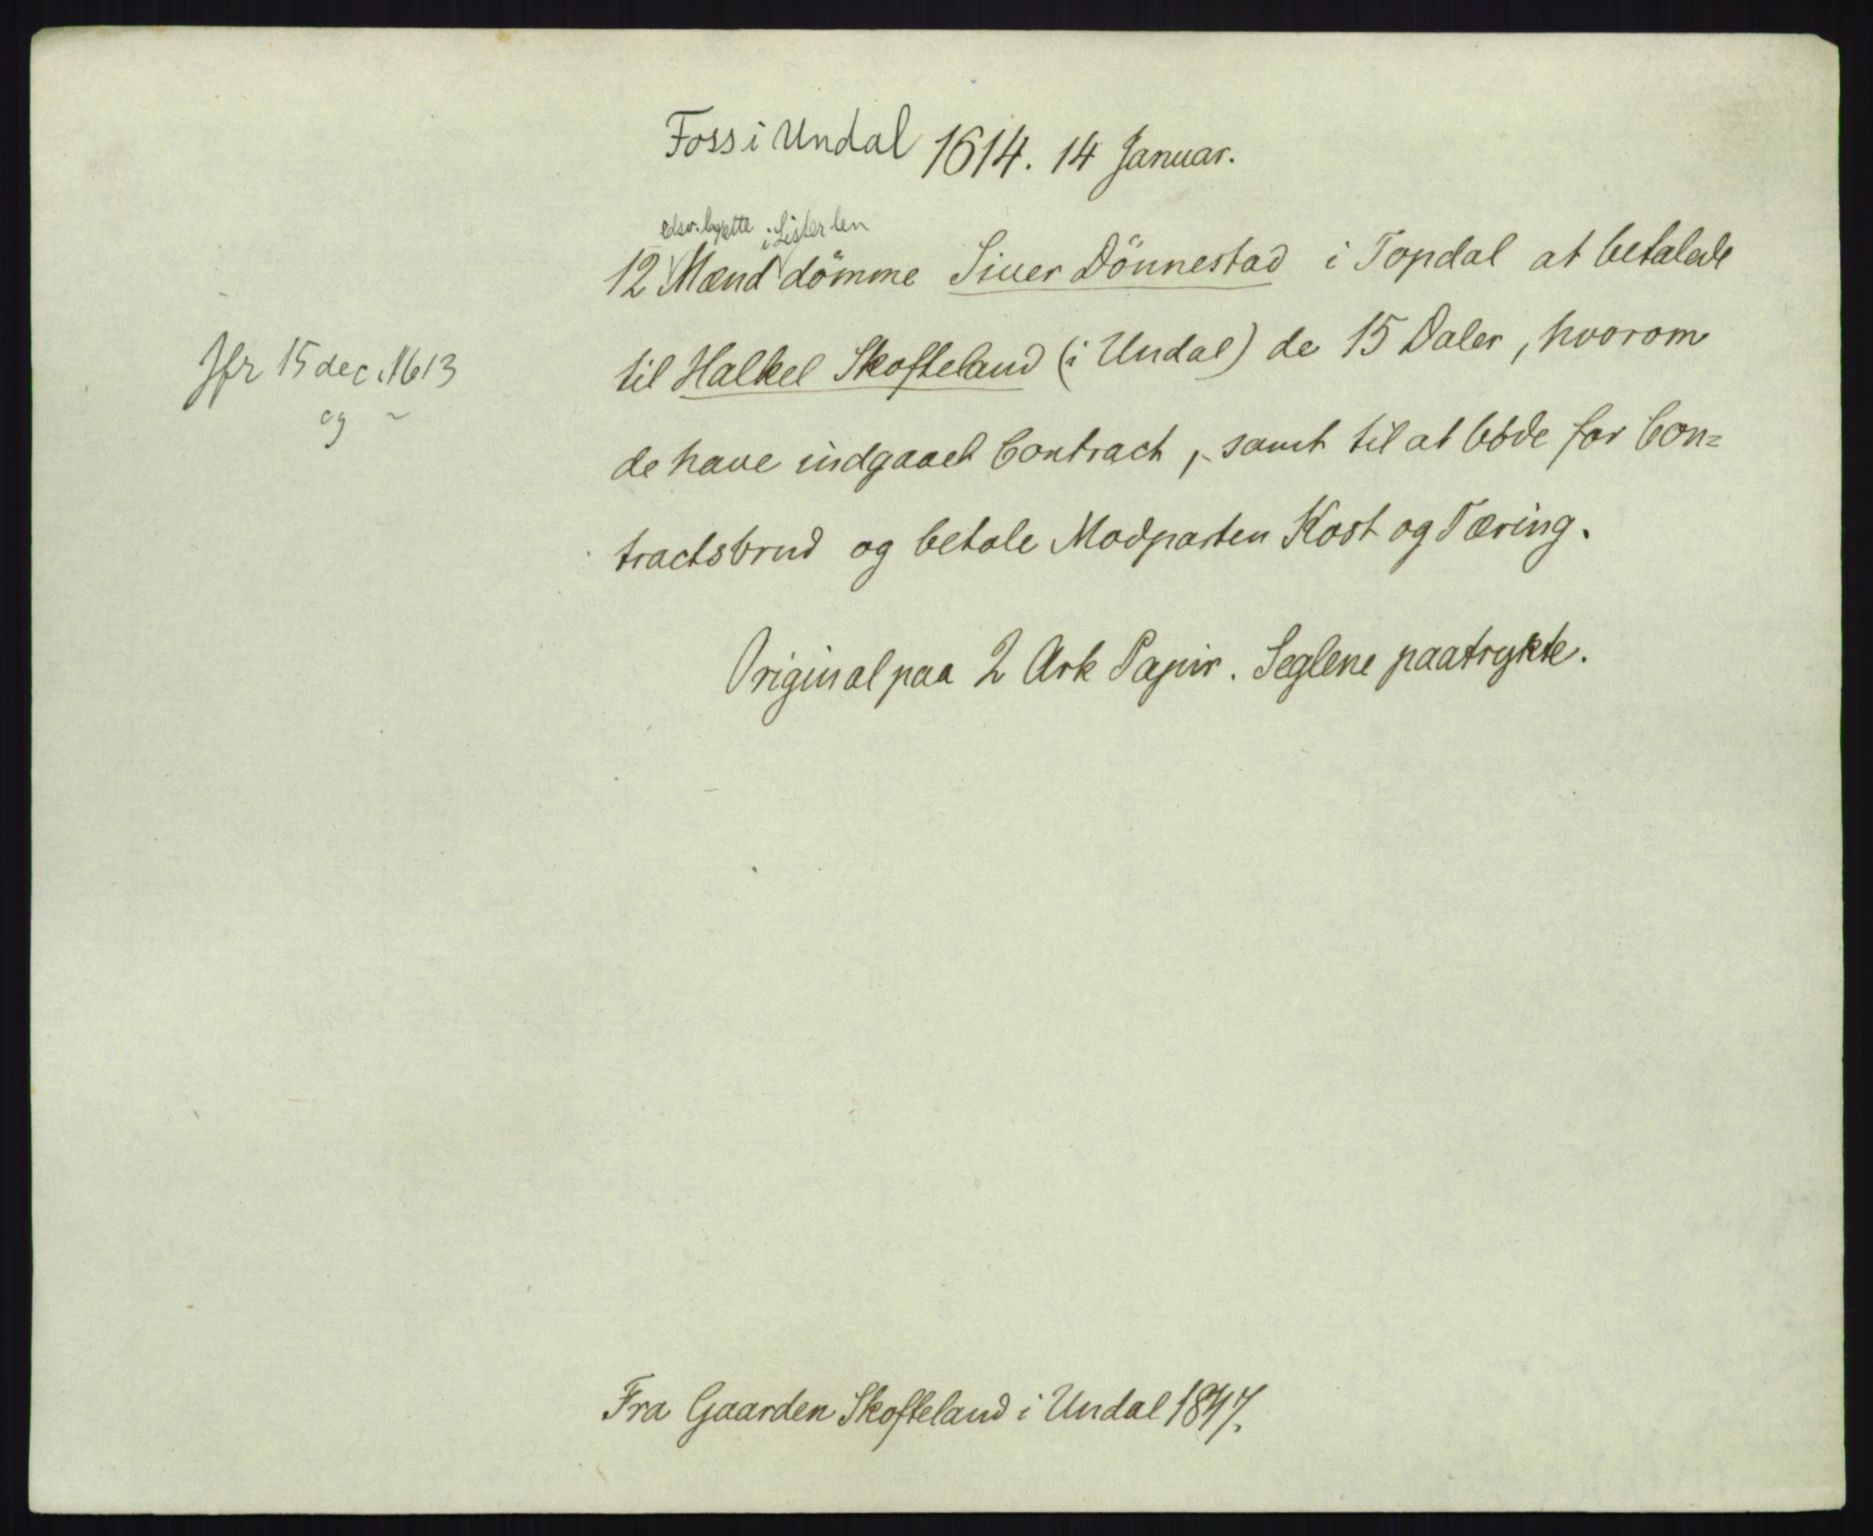 Foss i Undal 1614. 14 Januar.
edsv. lagrette i Lister len
12 Mænd dömme Siuer Dönnestad i Topdal at betale
til Halkel Skofteland (i Undal) de 15 Daler, hvorom
Jfr 15 dec. 1613
og ~
de have indgaaet Contract, samt til at böde for Con=
tractsbrud og betale Modparten Kost og Tæring.
Original paa 2 Ark Papir. Seglene paatrykte.
Fra Gaarden Skofteland i Undal 1847.